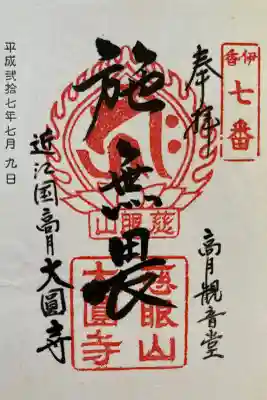 伊香
七番
奉拝
高月観音堂
施無畏
慈眼山
慈眼山
大圓寺
近江国高月大圓寺
平成弐拾七年七月九日